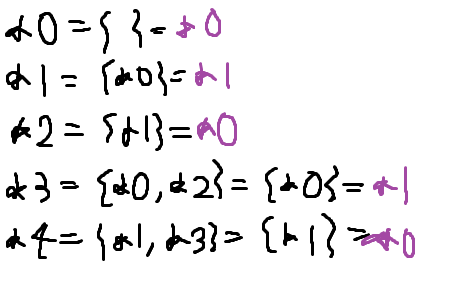 *0 = { } = *0
*1 = {*0} = *1
*2 = {*1} = *0
*3 = {*0, *2} = {*0} = *1
*4 = {*1, *3} = {*1} = *0